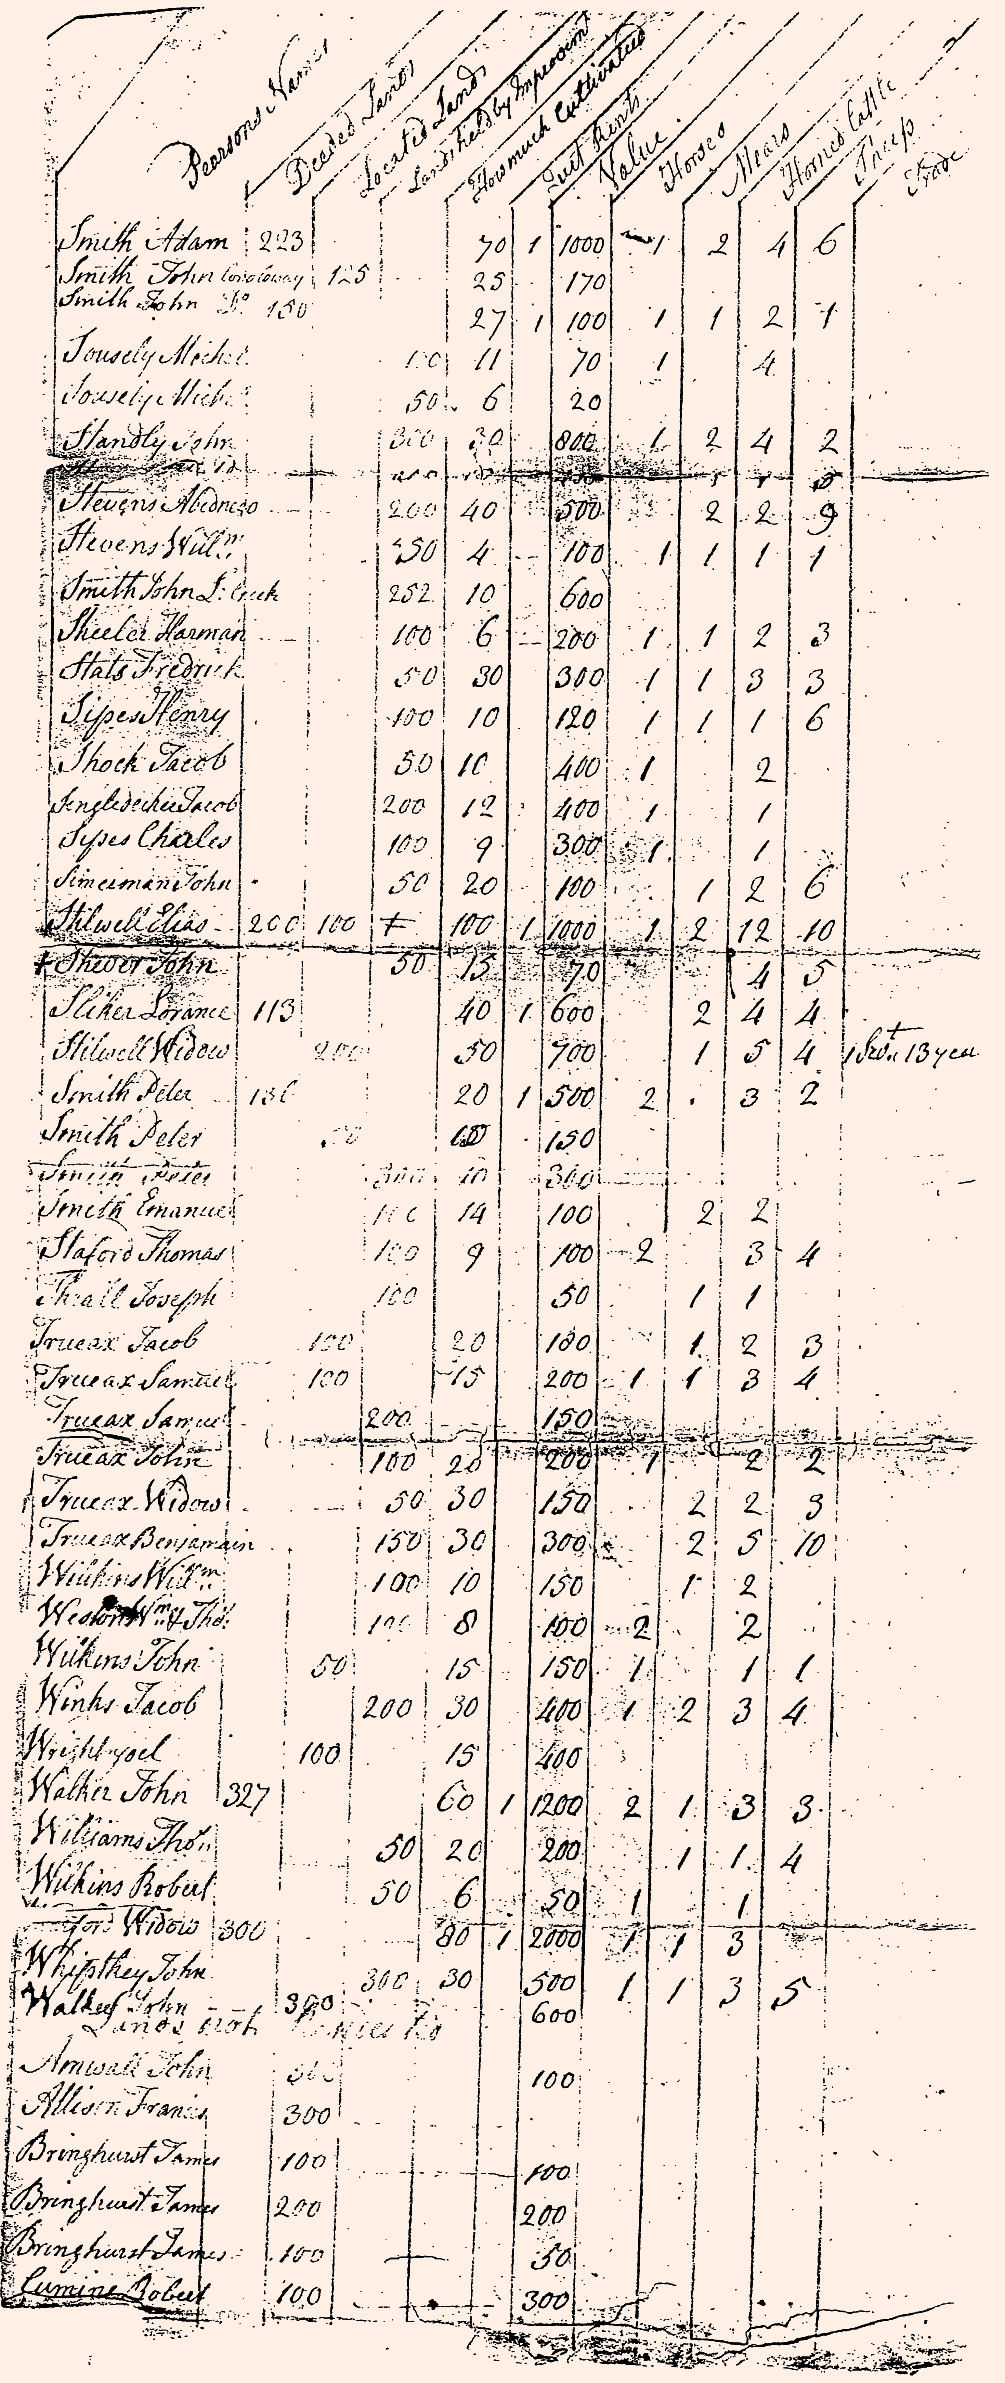 Pearsons Names Deeded Lands Located Lands Lands held by Improvmt How much Cultivated Quit Rents Value Horses Mears Horned Cattle Sheep Trade
Smith Adam 223 70 1 1000 1 2 4 6
Smith John 125 25 170
Smith John 150 27 1 100 1 1 2 1
Tousely Michel 100 11 70 1 4
Tousely Michel 50 6 20
Standly John 300 30 800 1 2 4 2
Stevens Abidnego 200 40 500 2 2 9
Stevens Willm 50 4 100 1 1 1 1
Smith John L. Creek 252 10 600
Sheeler Harman 100 6 200 1 1 2 3
Stats Fredrick 50 30 300 1 1 3 3
Sipes Henry 100 10 120 1 1 1 6
Shock Jacob 50 10 400 1 2
Jacob 200 12 400 1 1
Sipes Charles 100 9 300 1 1
Simerman John 50 20 100 1 2 6
Stilwell Elias 200 100 + 100 1 1000 1 2 12 10
+ Shever John 50 15 70 4 5
Sliker Lorance 113 40 1 600 2 4 4
Stilwell Widow 200 50 700 1 5 4 13 year
Smith Peter 130 20 1 500 2 3 2
Smith Peter 50 150
Smith Peter 300 10 300
Smith Emanuel 100 14 100 2 2
Staford Thomas 100 9 100 2 3 4
Thrall Joseph 100 50 1 1
Trueax Jacob 100 20 180 1 2 3
Trueax Samuel 100 15 200 1 1 3 4
Trueax Samuel 200 150
Trueax John 100 20 200 1 2 2
Trueax Widow 50 30 150 2 2 3
Trueax Benjamain 150 30 300 2 5 10
Wilkins Willm 100 10 150 1 2
Weston Wm & Thos 100 8 100 2 2
Wilkins John 50 15 150 1 1 1
Winks Jacob 200 30 400 1 2 3 4
Wright Joel 100 15 400
Walker John 327 60 1 1200 2 1 3 3
Williams Thos 50 20 200 1 1 4
Wilkins Robert 50 6 50 1 1
Widow 300 80 1 2000 1 1 3
Whipthey John 300 30 500 1 1 3 5
Walker John 300 600
Lands not
Amwall John 300 100
Allison Francis 300
Bringhurst James 100 100
Bringhurst James 200 200
Bringhurst James 100 50
Cumine Robert 100 300